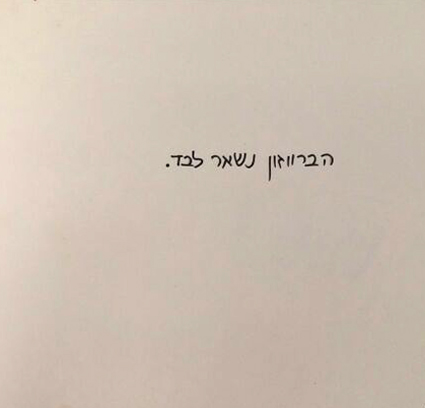 הברווזון נשאר לבד.